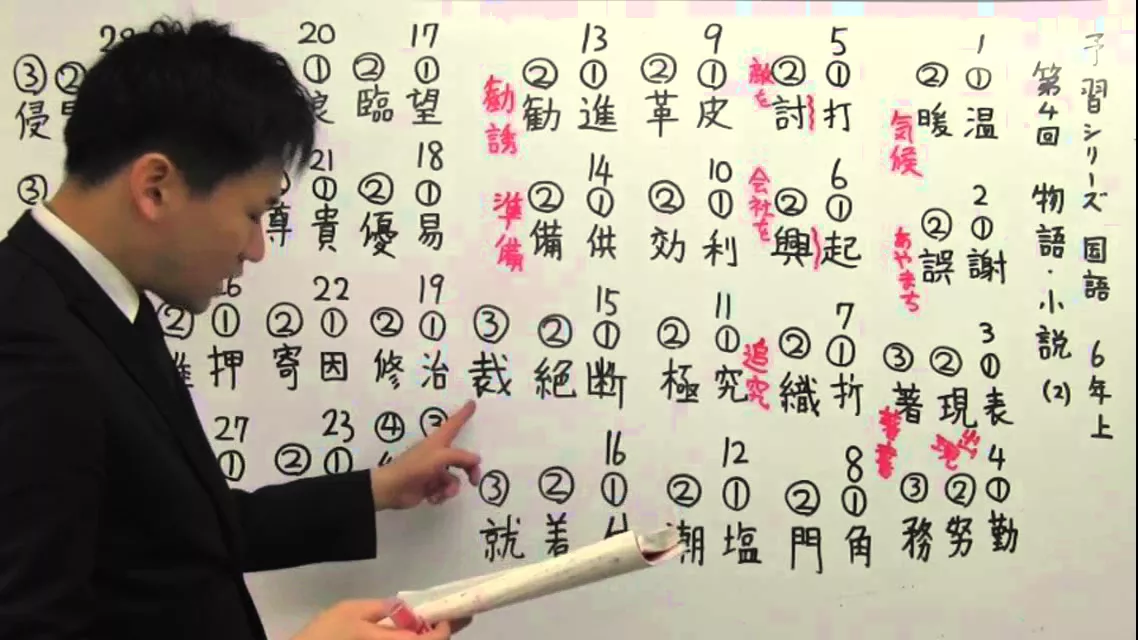 予習シリーズ 国語 6年上
第4回 物語・小説(2)
1 ①温 ②暖 気候
2 ①謝 ②誤 あやまち
3 ①表 ②現 出現 ③著 著書
4 ①勤 ②努 ③務
5 ①打 ②討 敵を
6 ①起 ②興 会社を
7 ①折 ②織
8 ①角 ②門
9 ①皮 ②革
10 ①利 ②効
11 ①究 ②極 追究
12 ①塩 ②潮
13 ①進 ②勧 勧誘
14 ①供 ②備 準備
15 ①断 ②絶 ③裁
16 ① ②着 ③就
17 ①望 ②臨
18 ①易 ②優
19 ①治 ②修 ③ ④
20 ①
21 ①貴 尊
22 ①因 ②寄
23 ① ②
①押 ②
27 ①
② ③侵
③